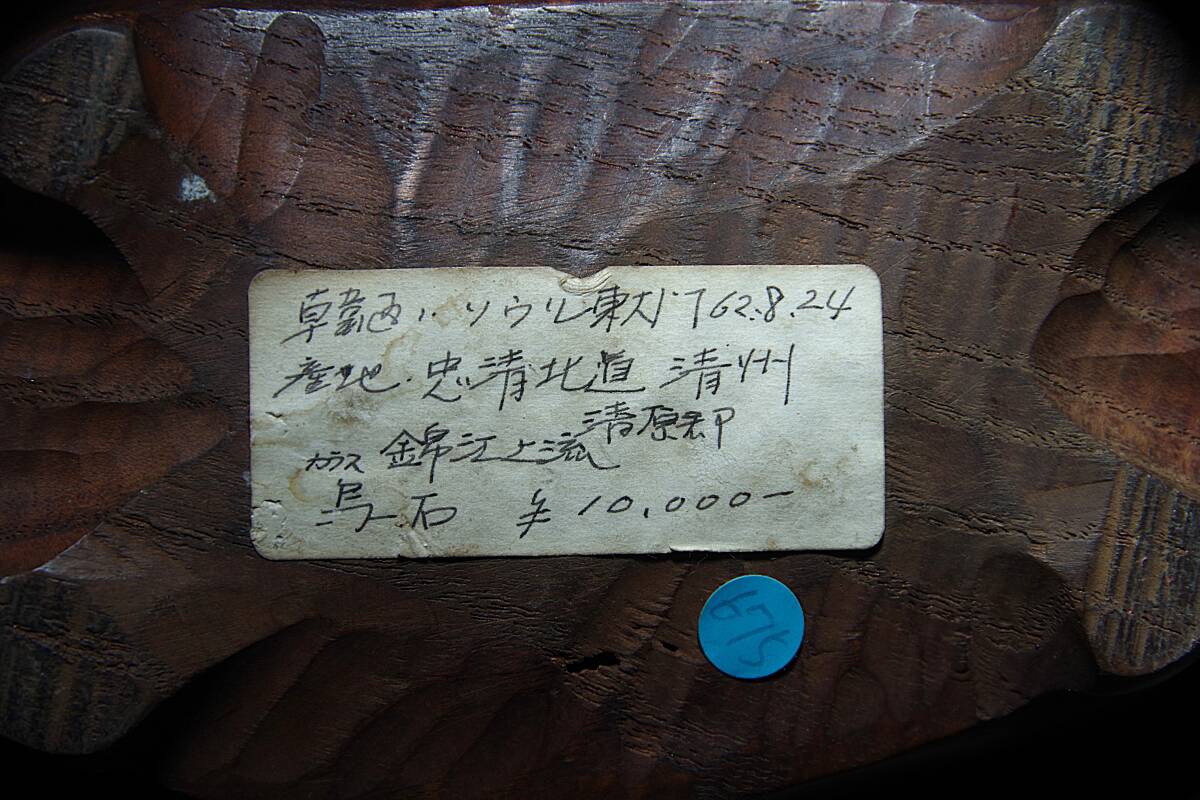 韓国ソウル東大门62.8.24
産地.忠清北道 清州
清原郡
カラス 錦江上流
烏石 ¥10,000-
675